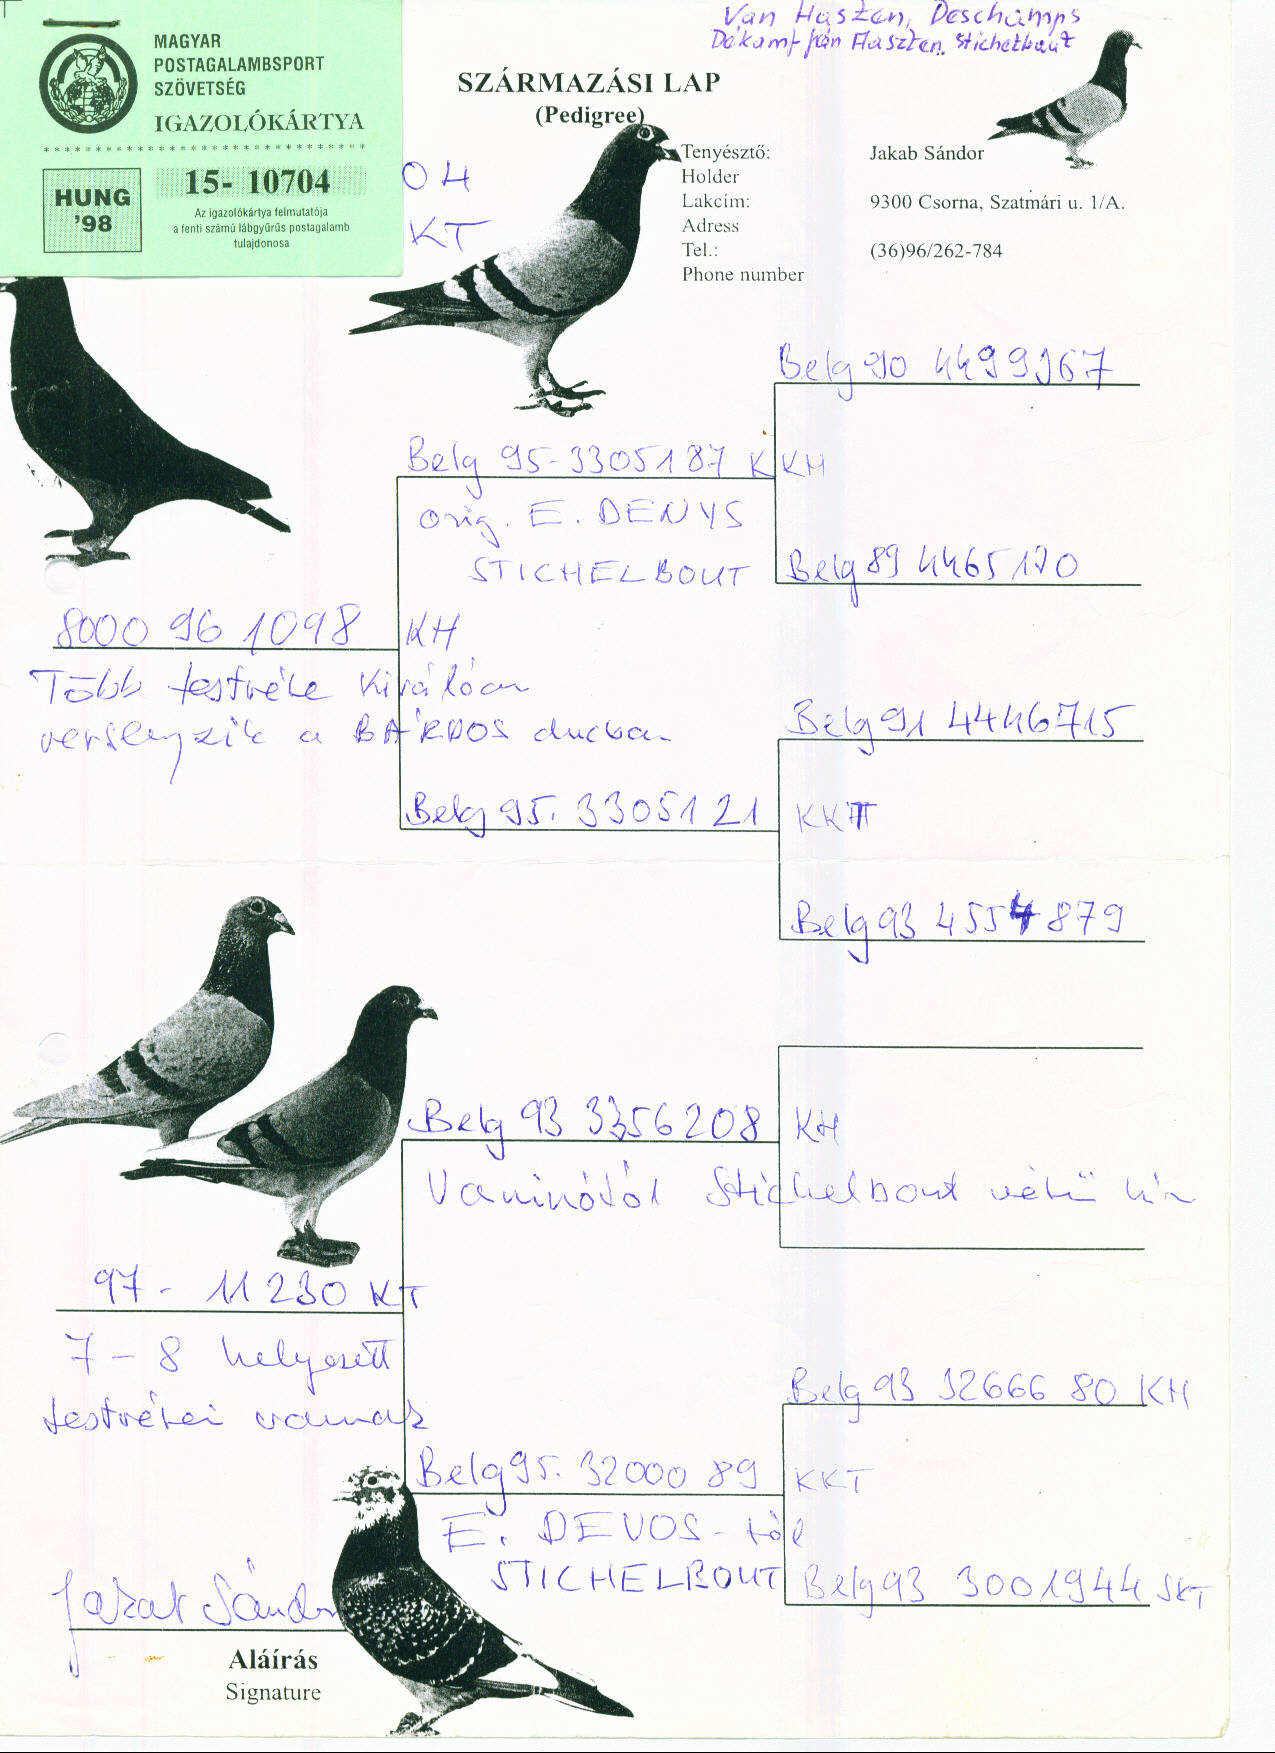 Van Haszen, Deschamps
Stichelbaut
MAGYAR
POSTAGALAMBSPORT
SZÖVETSÉG
IGAZOLÓKÁRTYA
HUNG
'98
15- 10704
Az igazolókártya felmutatója
a fenti számú lábgyűrűs postagalamb
tulajdonosa
04
KT
SZÁRMAZÁSI LAP
(Pedigree)
Tenyésztő: Jakab Sándor
Holder
Lakcím: 9300 Csorna, Szatmári u. 1/A.
Adress
Tel.: (36)96/262-784
Phone number
Belg 90 4499967
Belg 95-3305187 K KH
orig. E. DENYS
STICHELBOUT
Belg 89 4465170
8000 96 1098 KH
Több testvére kiválóan
versenyzik a BÁRDOS ducban
Belg 91 4446715
Belg 95. 3305121 KKT
Belg 93 4554879
Belg 93 3356208 KH
Vaninótól Stichelbout vérű hím
97- 11230 KT
7-8 helyezett
testvérei vannak
Belg 93 32666 80 KH
Belg 95. 32000 89 KKT
E. DEVOS-tól
STICHELBOUT
Belg 93 3001944 SKT
Jakab Sándor
Aláírás
Signature